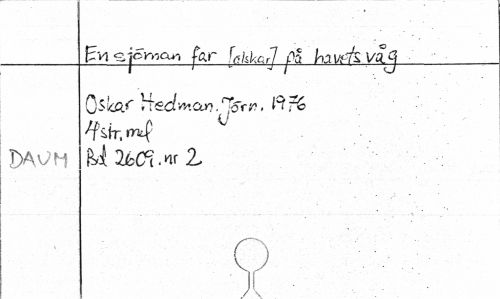 En sjöman far [älskar] på havets våg
Oskar Hedman. Jörn. 1976
4 str, mel
DAUM Bd 2609. nr 2